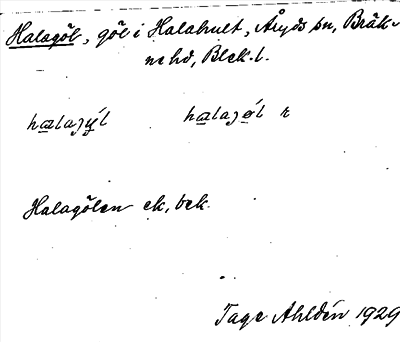 Halagöl, göl i Halahult, Åryds sn, Bräk-
ne hd, Blek. l.
halaʒý́l halaʒǿl r
Halagölen ek, bek.
Tage Ahldén 1929